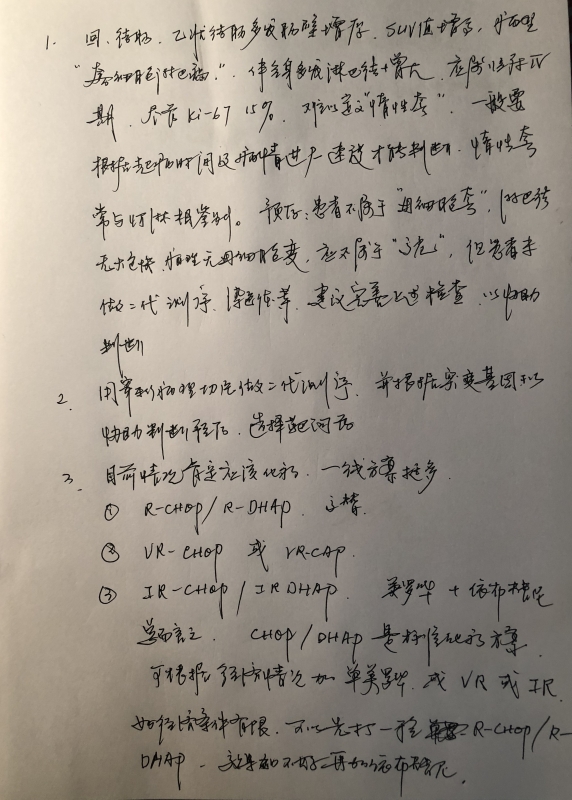 1. 回、结肠、乙状结肠多发肠壁增厚、SUV值增高, 病理
"套细胞淋巴瘤". 伴全身多发淋巴结增大, 应属临床IV
期. 尽管 Ki-67 15%. 难以定"惰性套". 一般要
根据起病时间及病情进展速度才能判断. 惰性套
常与 相鉴别。 预后: 患者不属于"母细胞套", 淋巴结
无大包块, 病理无母细胞变, 应不属于"高危", 但患者未
做二代测序、 建议完善上述检查. 以协助
判断
2. 用穿刺病理切片做二代测序, 并根据突变基因以
协助判断预后、选择靶向药
3. 目前情况肯定应该化疗. 一线方案挺多.
① R-CHOP/R-DHAP. 交替.
② VR-CHOP 或 VR-CAP.
③ IR-CHOP/IRDHAP. 美罗华+依布替尼
总而言之. CHOP/DHAP 是标准化疗方案
可根据经济情况加 单美罗华. 或 VR 或 IR.
如经济条件有限. 可以先打一程 R-CHOP/R-
DHAP. 效果如不好 再加依布替尼.